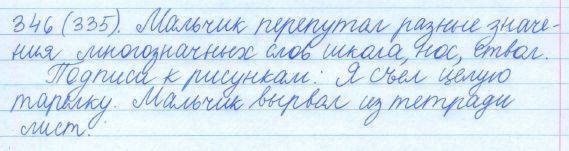 346 (335). Мальчик перепутал разные значе-
ния многозначных слов школа, нос, ствол.
Подписи к рисункам: Я съел целую
тарелку. Мальчик вырвал из тетради
лист.